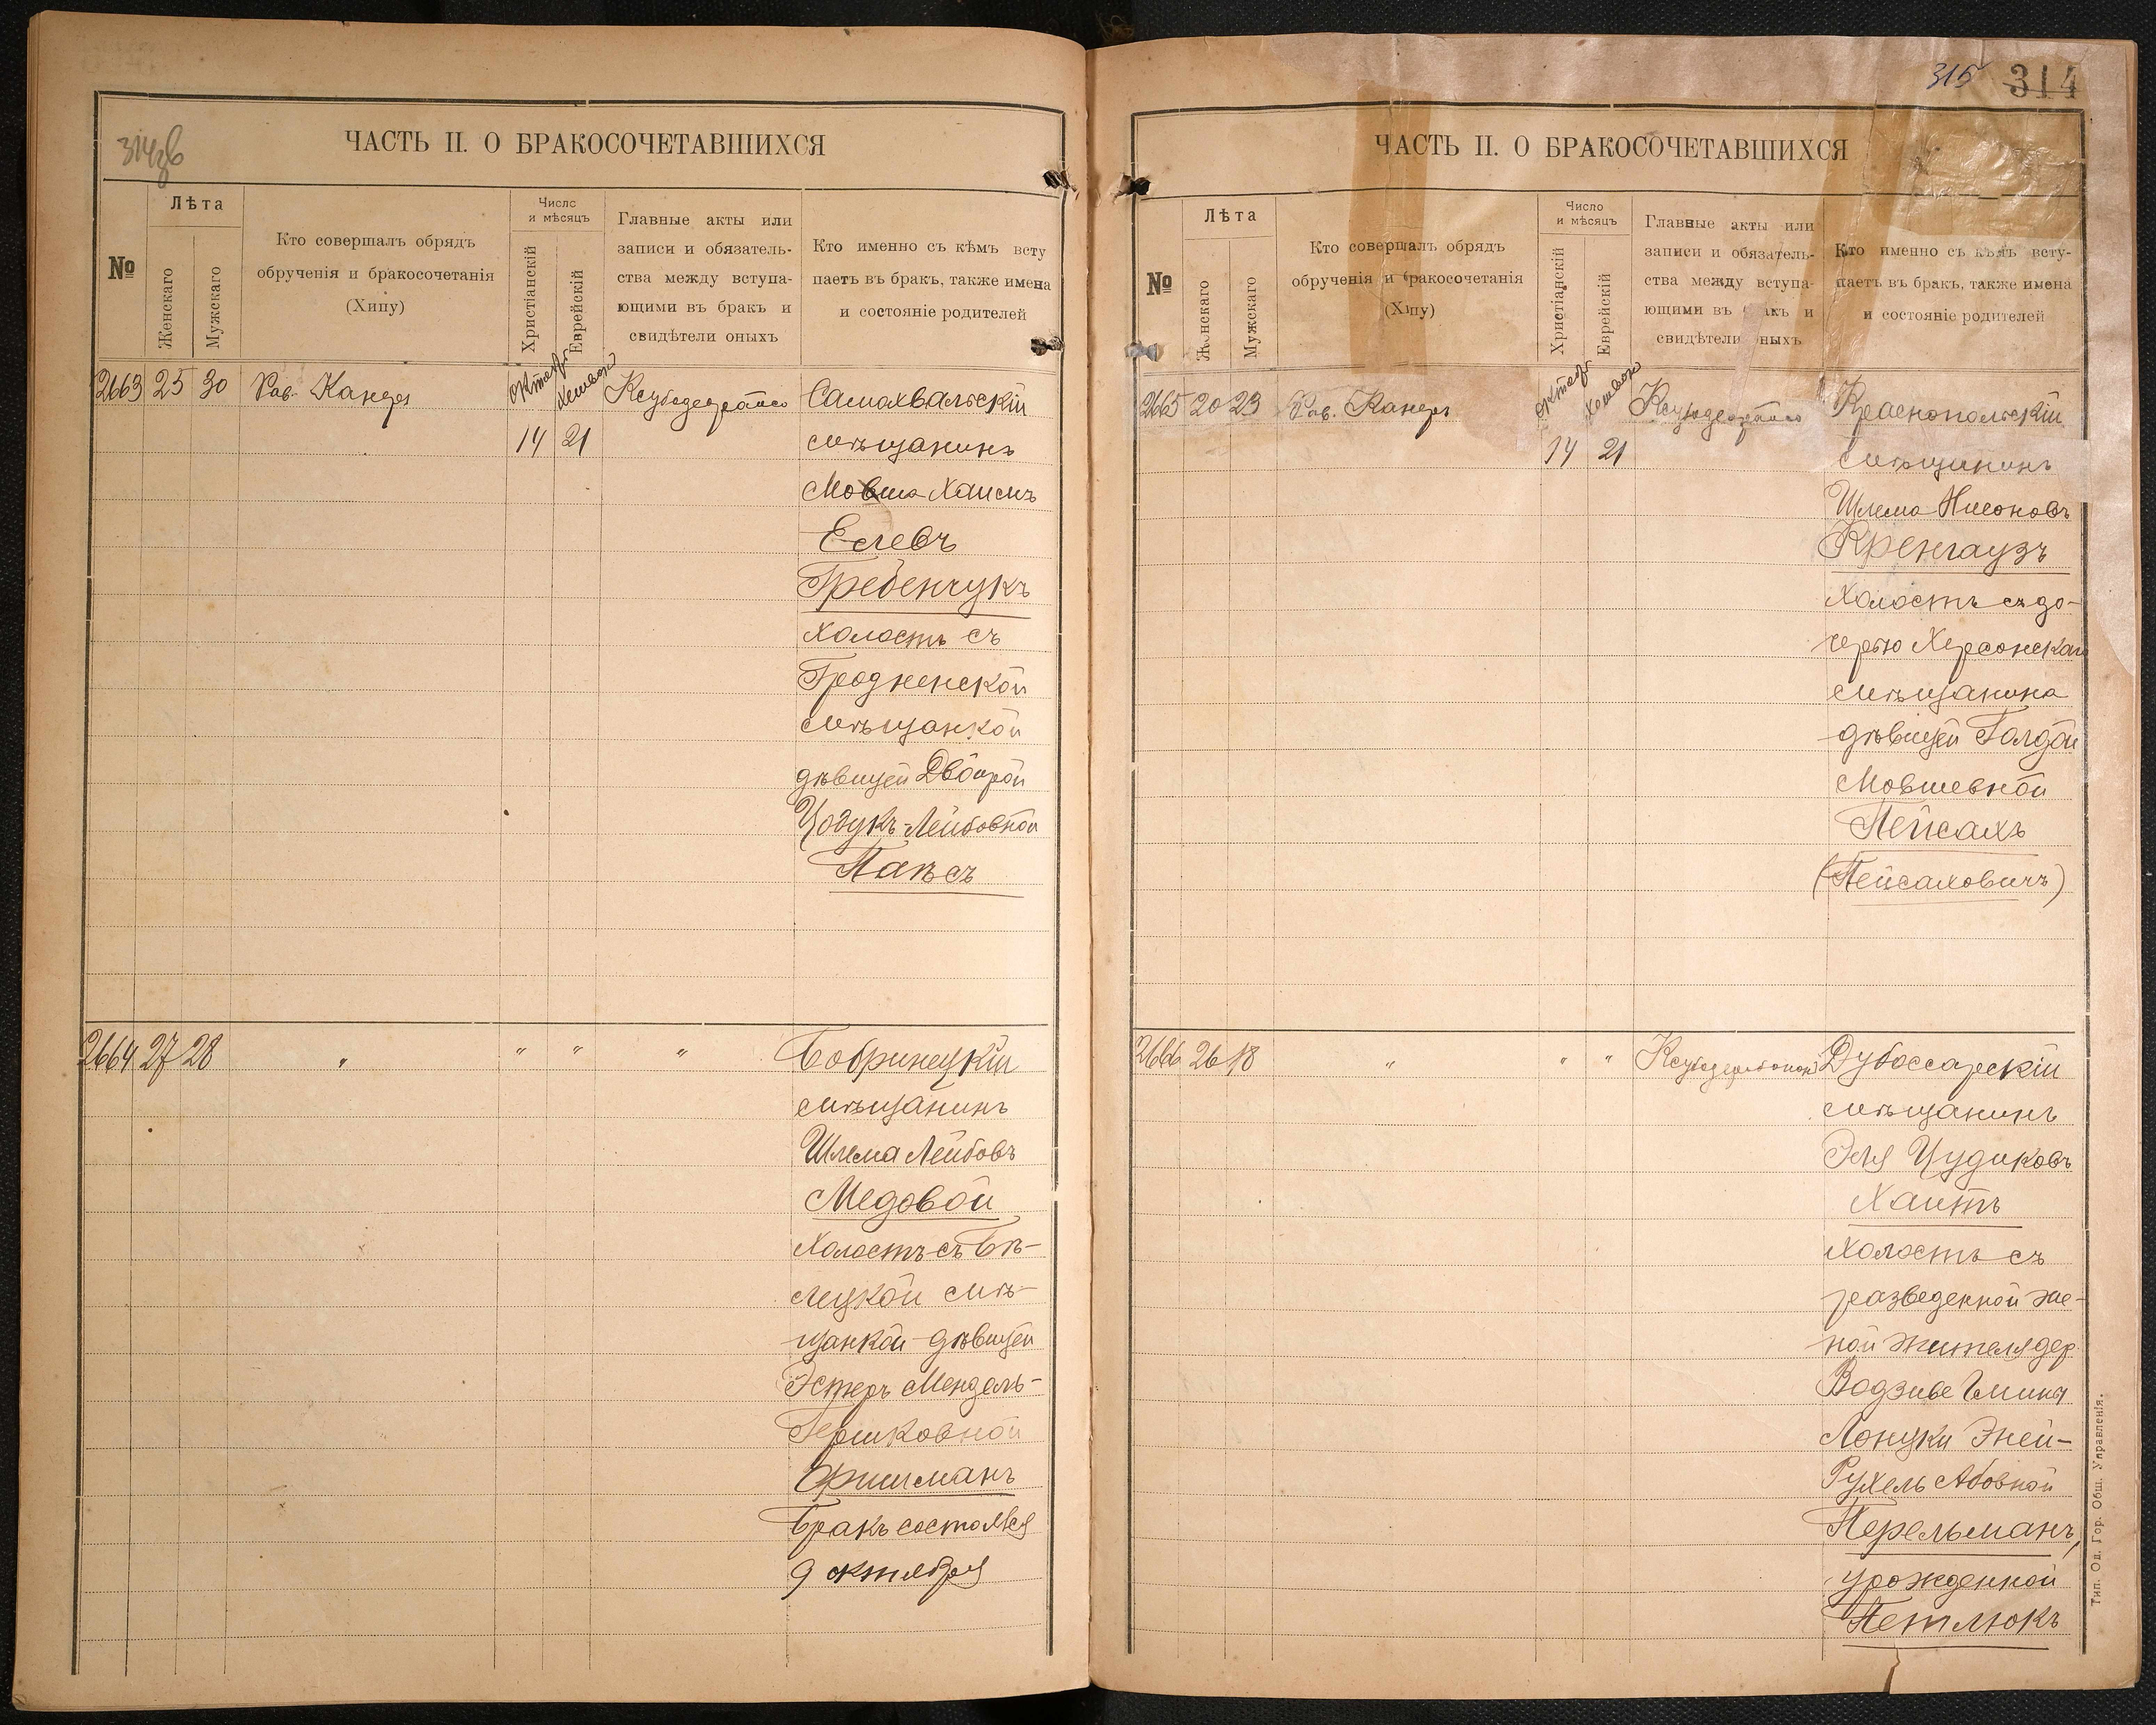 314зв
ЧАСТЬ II. О БРАКОСОЧЕТАВШИХСЯ
№
Лѣта
Женскаго
Мужскаго
Кто совершалъ обрядъ
обрученія и бракосочетанія
(Хипу)
Число
и мѣсяцъ
Христіанскій
Еврейскій
Главные акты или
записи и обязатель-
ства между вступа-
ющими въ бракъ и
свидѣтели оныхъ
Кто именно съ кѣмъ всту
паетъ въ бракъ, также имена
и состояніе родителей
2663 25 30 Рав. Канеръ
14 21
Самохвальскій
мѣщанинъ
Мовша Хаимъ
Еслевъ
Гребенчукъ
холостъ съ
Гродненской
мѣщанкой
дѣвицей Двойрой
Цодукъ-Лейбовной
Папѣсъ
2664 27 28 " " " "
Бобринецкій
мѣщанинъ
Шлема Лейбовъ
Медовой
холостъ съ Бѣ-
лецкой мѣ-
щанкой дѣвицей
Эстеръ Мендель-
Гершковной
Фишманъ
Бракъ состоялся
9 октября
315 314
ЧАСТЬ II. О БРАКОСОЧЕТАВШИХСЯ
№
Лѣта
Женскаго
Мужскаго
Кто совершалъ обрядъ
обрученія и бракосочетанія
(Хипу)
Число
и мѣсяцъ
Христіанскій
Еврейскій
Главные акты или
записи и обязатель-
ства между вступа-
ющими въ бракъ и
свидѣтели оныхъ
Кто именно съ кѣмъ всту-
паетъ въ бракъ, также имена
и состояніе родителей
2665 20 23 Рав. Канеръ
14 21
Краснопольскій
мѣщанинъ
Шлема Нисоновъ
Кренгаузъ
холостъ съ до-
черью Херсонскаго
мѣщанина
дѣвицей Голдой
Мовшевной
Пейсахъ
(Пейсаховичъ)
2666 26 18 " " "
Дубоссарскій
мѣщанинъ
Эля Цудиковъ
Хаитъ
холостъ съ
разведенной же-
ной жителя дер.
Рухель Абовной
Перельманъ,
урожденной
Петлюкъ
Тип. Од. Гор. Общ. Управленія.